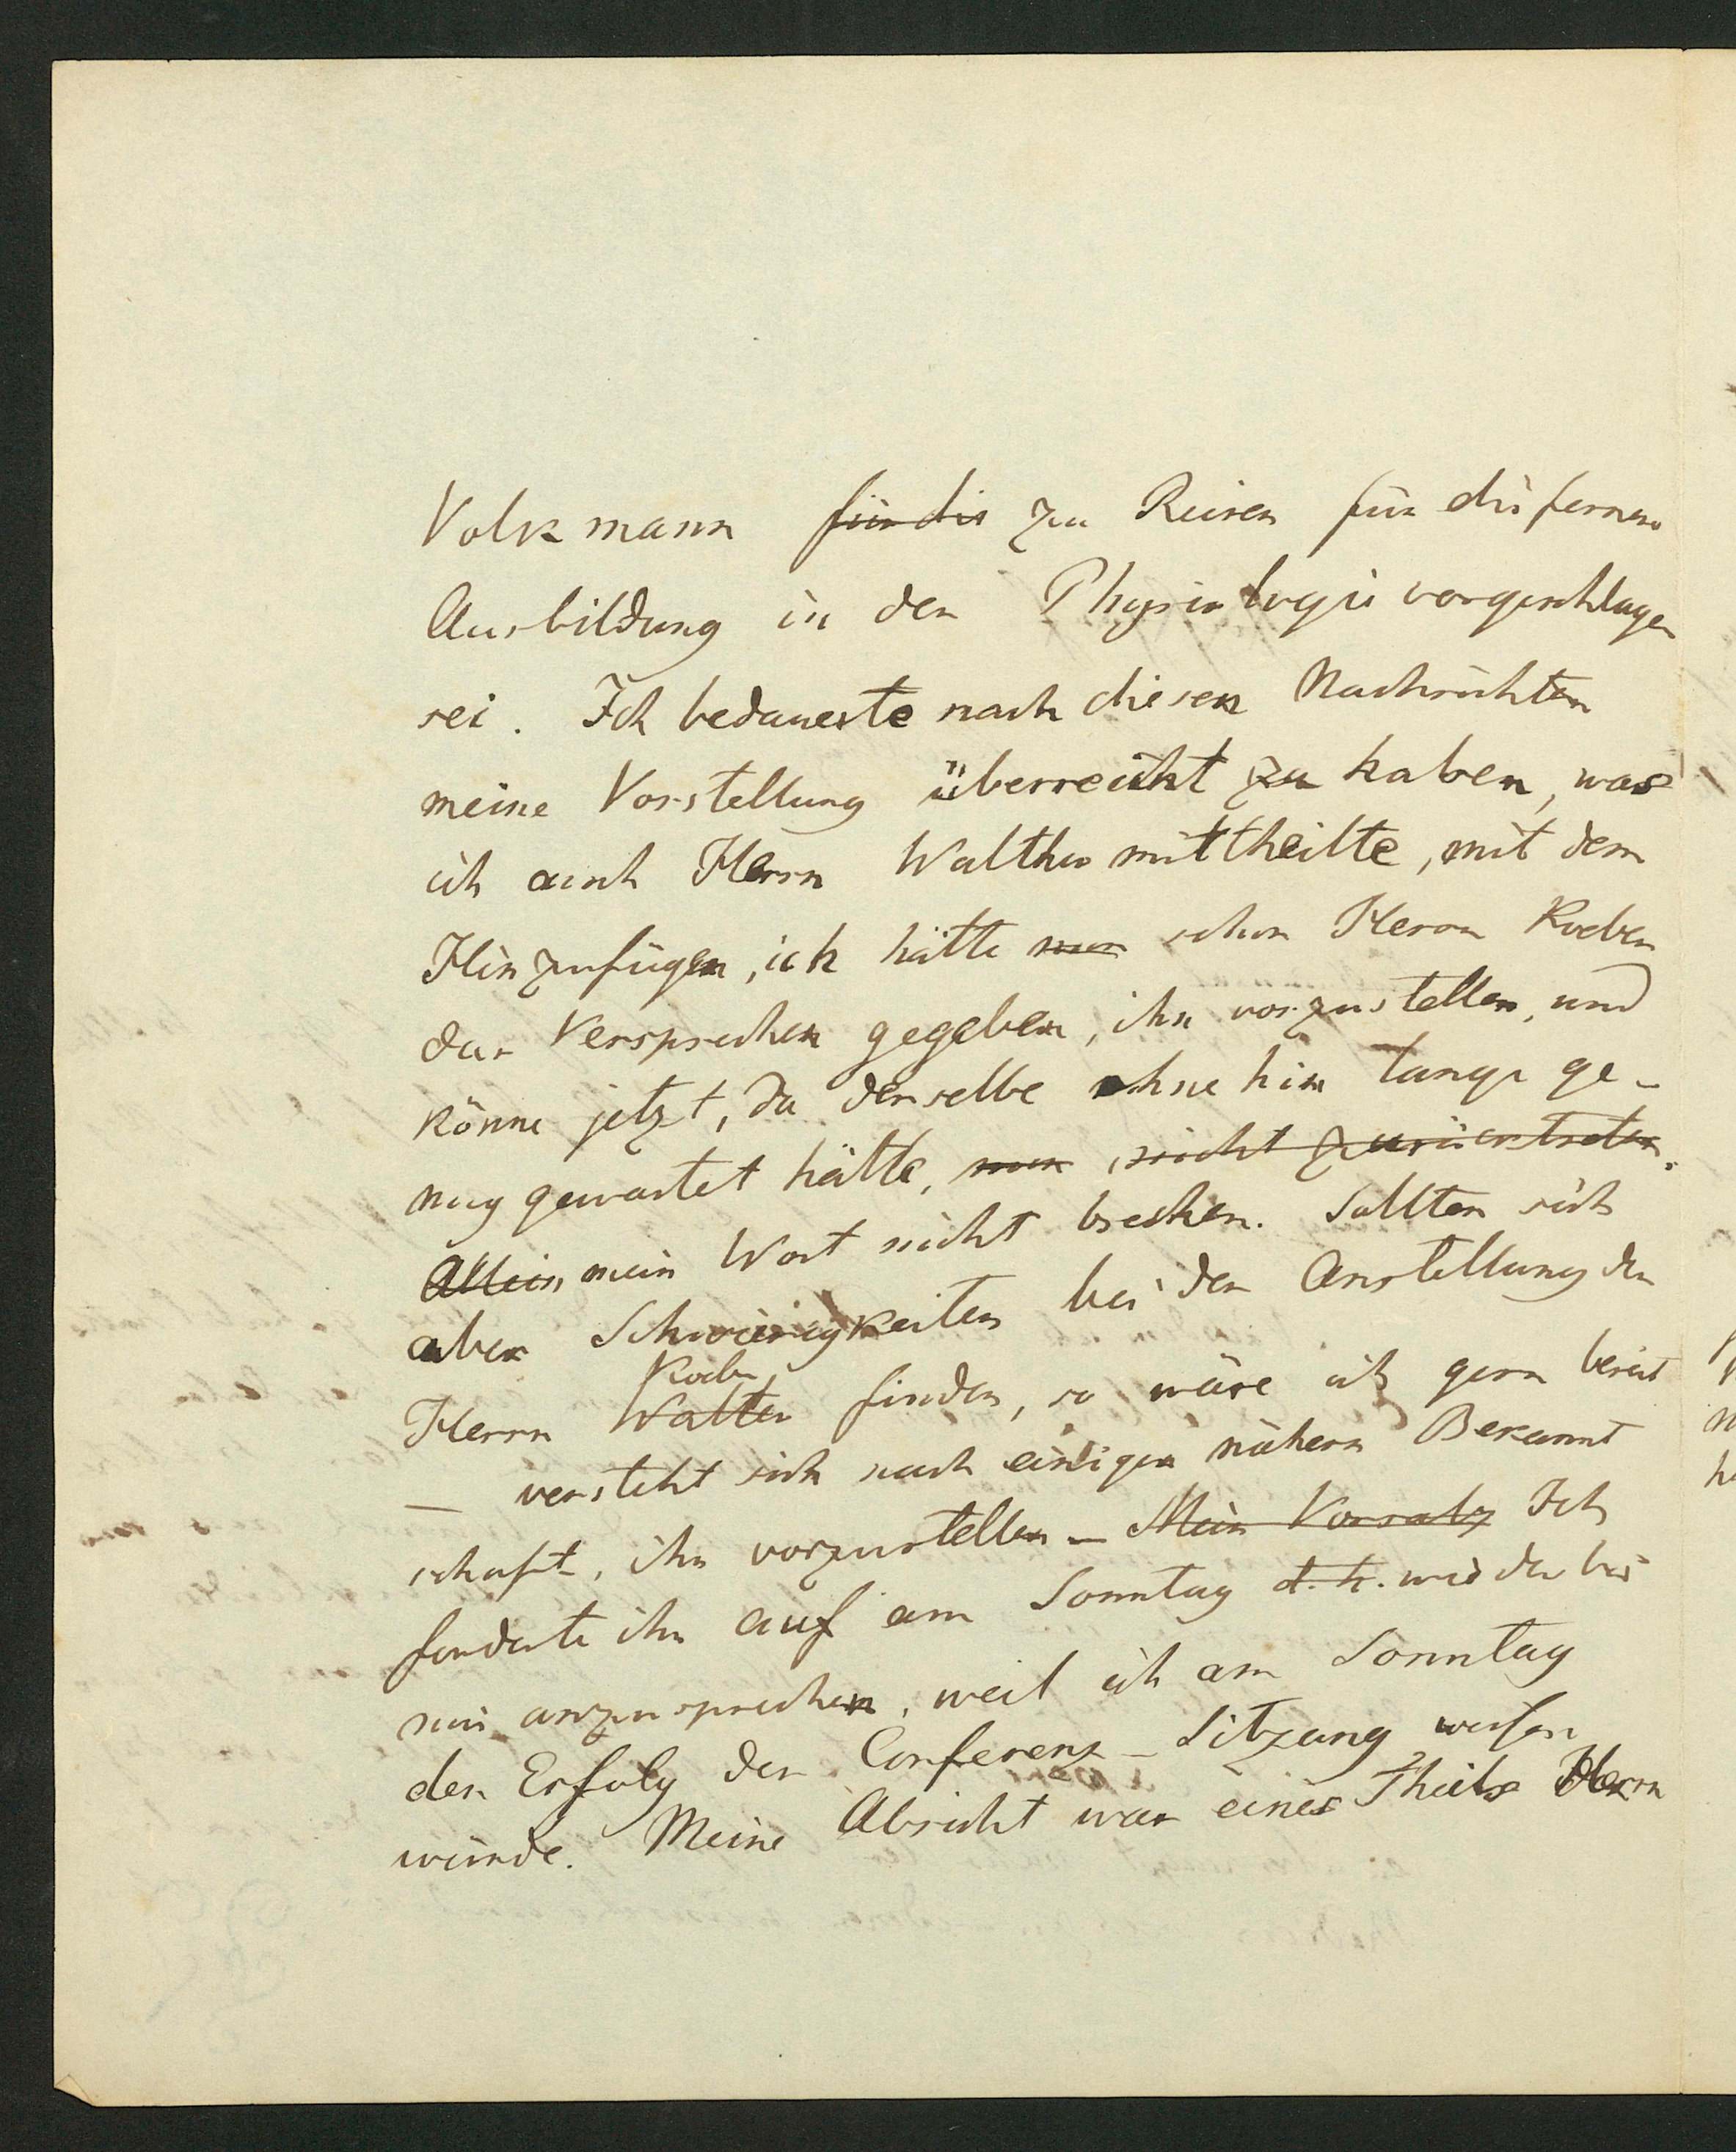 Volkmann für die zu Reisen für die fernere
Ausbildung in der Physiologie vorgeschlagen
sei. Ich bedauerte nach diesen Nachrichten
meine Vorstellung überreicht zu haben, was
ich auch Herrn Walther mittheilte, mit dem
Hinzufügen, ich hätte nun schon Herrn Koeber
das Versprechen gegeben, ihn vorzustellen, und
könne jetzt, da derselbe ohnehin lange ge-
nug gewartet hätte, nun nicht zurücktreten.
Allein mein Wort nicht brechen. Sollten sich
aber Schwierigkeiten bei der Anstellung des
Koeber
Herrn Walter finden, so wäre ich gern bereit
— versteht sich nach einiger nähern Bekannt
schaft, ihn vorzustellen — Mein Vorsatz Ich
forderte ihn auf am Sonntag d. h. wieder bei
mir anzusprechen, weil ich am Sonntag
den Erfolg der Conferenz-Sitzung wissen
würde. Meine Absicht war eines Theils Herrn